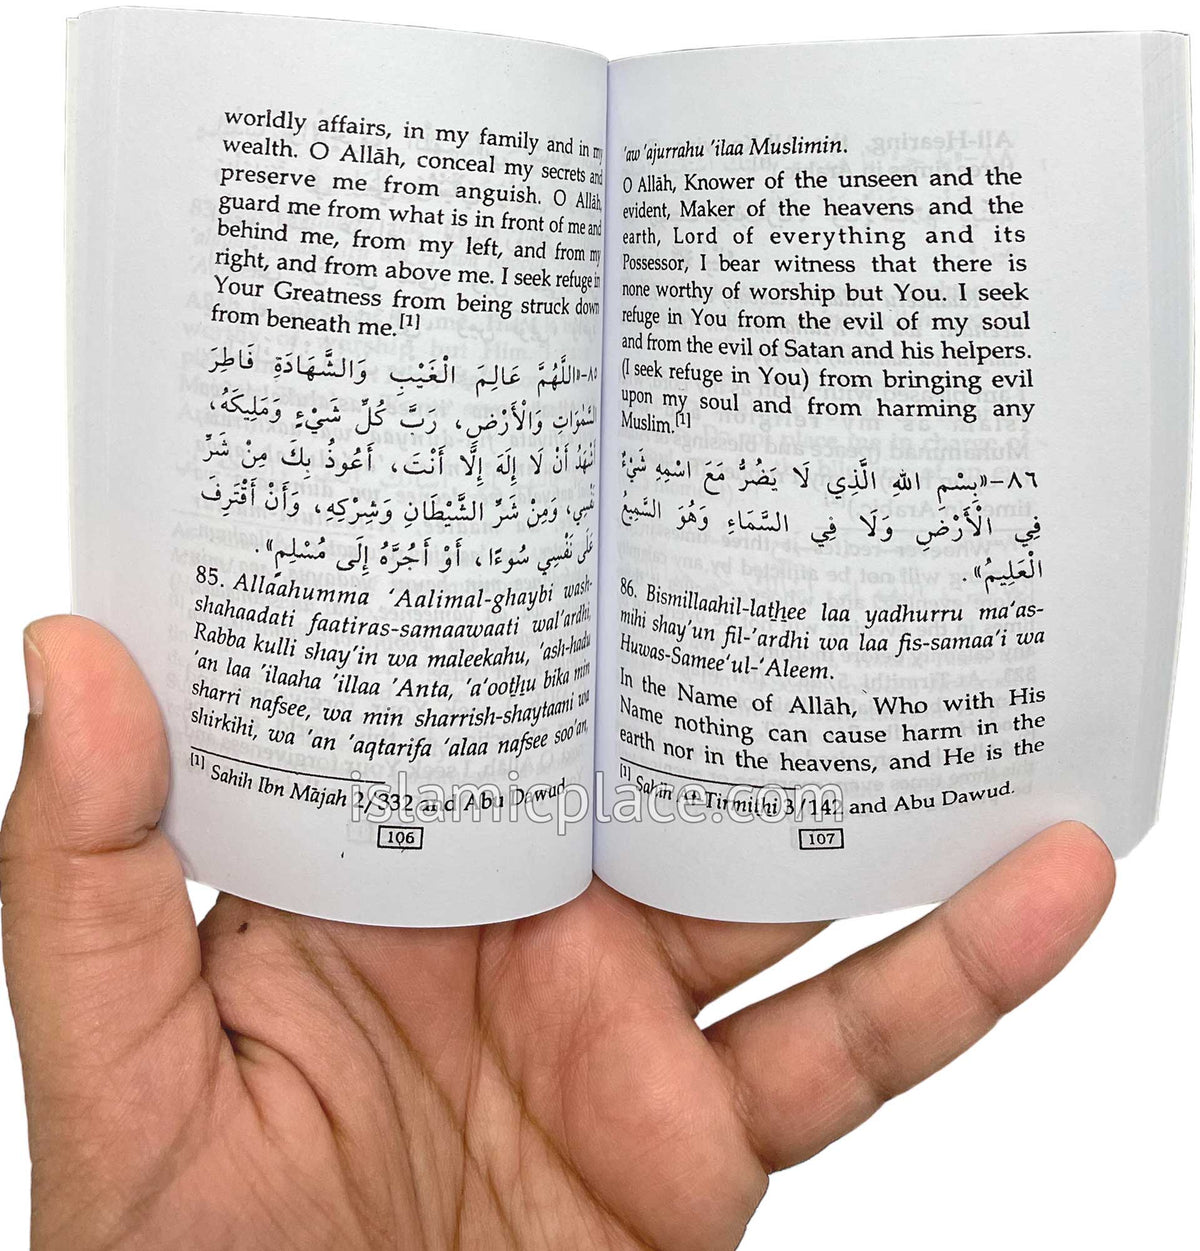 worldly affairs, in my family and in my
wealth. O Allāh, conceal my secrets and
preserve me from anguish. O Allāh,
guard me from what is in front of me and
behind me, from my left, and from my
right, and from above me. I seek refuge in
Your Greatness from being struck down
from beneath me.[1]
٨٥-«اللَّهُمَّ عَالِمَ الْغَيْبِ وَالشَّهَادَةِ فَاطِرَ
السَّمٰوَاتِ وَالْأَرْضِ، رَبَّ كُلِّ شَيْءٍ وَمَلِيكَهُ،
أَشْهَدُ أَنْ لَا إِلَهَ إِلَّا أَنْتَ، أَعُوذُ بِكَ مِنْ شَرِّ
نَفْسِي، وَمِنْ شَرِّ الشَّيْطَانِ وَشِرْكِهِ، وَأَنْ أَقْتَرِفَ
عَلَى نَفْسِي سُوءًا، أَوْ أَجُرَّهُ إِلَى مُسْلِمٍ».
85. Allaahumma 'Aalimal-ghaybi wash-
shahaadati faatiras-samaawaati wal'ardhi,
Rabba kulli shay'in wa maleekahu, 'ash-hadu
'an laa 'ilaaha 'illaa 'Anta, 'a'ootẖu bika min
sharri nafsee, wa min sharrish-shaytaani wa
shirkihi, wa 'an 'aqtarifa 'alaa nafsee soo'an,
[1] Sahih Ibn Mājah 2/332 and Abu Dawud
106
'aw 'ajurrahu 'ilaa Muslimin.
O Allāh, Knower of the unseen and the
evident, Maker of the heavens and the
earth, Lord of everything and its
Possessor, I bear witness that there is
none worthy of worship but You. I seek
refuge in You from the evil of my soul
and from the evil of Satan and his helpers.
(I seek refuge in You) from bringing evil
upon my soul and from harming any
Muslim.[1]
٨٦-«بِسْمِ اللهِ الَّذِي لَا يَضُرُّ مَعَ اسْمِهِ شَيْءٌ
فِي الْأَرْضِ وَلَا فِي السَّمَاءِ وَهُوَ السَّمِيعُ
الْعَلِيمُ».
86. Bismillaahil-latẖee laa yadhurru ma'as-
mihi shay'un fil-'ardhi wa laa fis-samaa'i wa
Huwas-Samee'ul-'Aleem.
In the Name of Allāh, Who with His
Name nothing can cause harm in the
earth nor in the heavens, and He is the
[1] Sahih At-Tirmithi 3/142 and Abu Dawud.
107
islamicplace.com